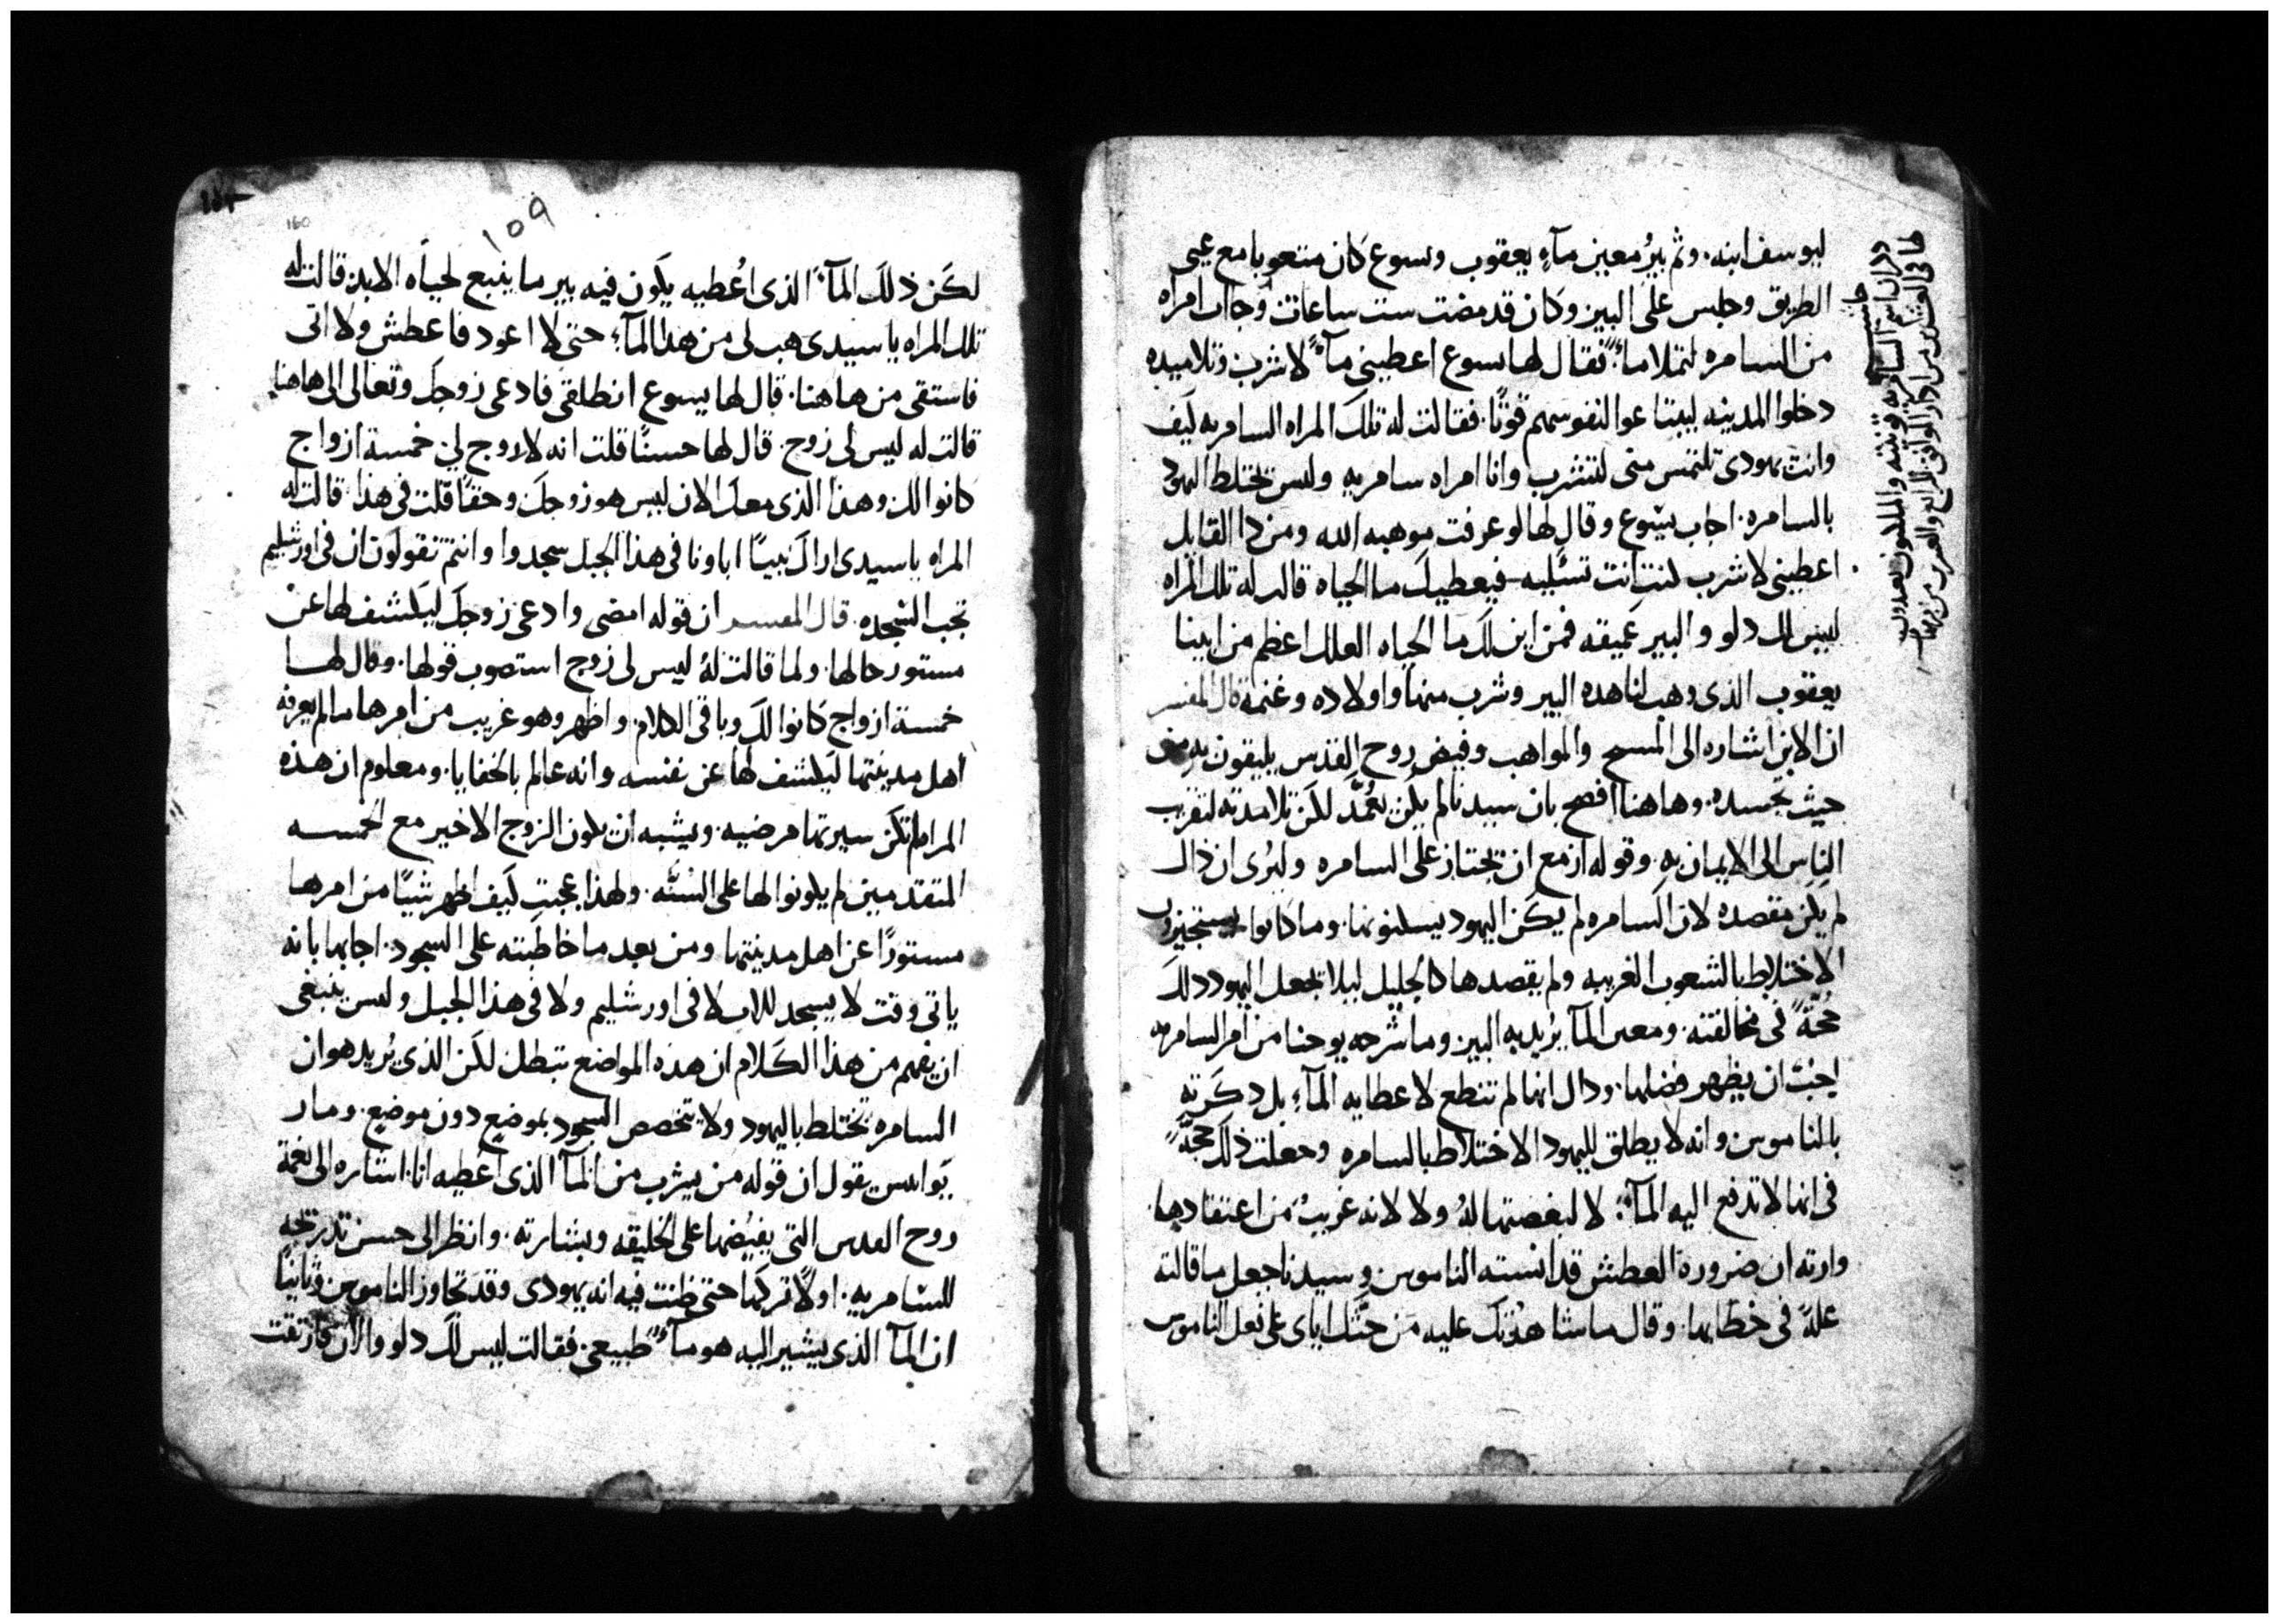 ليوسف ابنه. وثم بيرُ معين مآءِ يعقوب ويسوع كان متعوبا مع عيى
الطريق وجلس على البير وكان قد مضت ست ساعات وجات امراه
من السامره لتملا ماءً. فقال لها يسوع اعطيني مآءً لاشرب وتلاميده
دخلوا المدينه ليبتاعوا لنفوسهم قوتًا. فقالت له تلك المراه السامريه كيف
وانت يهودى تلتمس منى لتشرب وانا امراه سامريه وليس تختلط اليهود
بالسامره. اجاب يسوع وقال لها لو عرفت موهبه الله ومن ذا القايل
اعطينى لاشرب لنتِ انت تسئليه فيعطيك ما الحياه قالت له تلك المراه
ليس لك دلو والبير عَميقه فمن اين لك ما الحياه العلك اعظم من ابينا
يعقوب الذى وهب لنا هده البير وشرب منها واولاده وغنمه قال المفسر
ان الابن اشاره الى المسيح والمواهب وفيض روح القدس يليقون به من
حيث تجسده. وهاهنا افصح بان سيدنا لم يكن يُعمّد لكن تلامدته لتقريب
الناس الى الايمان به. وقوله ازمع ان يجتاز على السامره وليُرى ان ذلك
لم يكن مقصده لان السامره لم يكن اليهود يسكنونها. وما كانوا يستجيزون
الاختلاط بالشعوب الغريبه ولم يقصدها كالجليل ليلا تجعل اليهود ذلك
حُجّةً فى مخالفته. ومعين المآ يُريد به البير وما شرحه يوحنا من امر السامريه
يجبُ ان يظهر فضلها. ودال انها لم تنطع لاعطايه المآءِ بل دكَرته
بالناموس وانه لا يطلق لليهود الاختلاط بالسامره وجعلت ذلك حجّةً
فى انها لا تدفع اليه المآءَ؛ لا لبغضتها لهُ ولا لانه غريبُ من اعتقادها.
وارته ان ضرورة العطش قد انسته الناموس وسيدنا جعل ما قالته
علةً فى خطابها. وقال ما شاهدتك عليه من حثّك اياى على فعل الناموس
حاشيه
ذكر ان اسم السامريه فوتينه
لكَن ذلك المآءَ الذى اُعطيه يكَون فيه بير ما ينبع لحياه الابد قالت له
تلك المراه يا سيدى هب لى من هذا المآءِ؛ حتى لا اعود فاعطش ولا اتى
فاستقى من هاهنا. قال لها يسوع انطلقى فادعى زوجك وتعالى الى هاهنا
قالت له ليس لى زوج. قال لها حسنًا قلت انه لا زوج لى خمسة ازواج
كانوا لك وهذا الذى معك الان ليس هو زوجك وحقًا قلت فى هذا. قالت له
المراه يا سيدى اراك نبيًا اباونا فى هذا الجبل سجدوا وانتم تقولون ان فى اورشليم
تجب السجده. قال المفسر ان قوله امضى وادعى زوجك ليكشف لها عن
مستور حالها. ولما قالت لهُ ليس لى زوج استصوب قولها. وقال لها
خمسة ازواج كانوا لك وباقى الكلام. واظهر وهو غريب من امرها ما لم يعرفه
اهل مدينتها ليكشف لها عن نفسه وانه عالم بالخفايا. ومعلوم ان هذه
المراه لم تكن سيرتها مرضيه. ويشبه ان يكون الزوج الاخير مع الخمسه
المتقدمين لم يكونوا لها على السُنّه. ولهذا عجبت كَيف اظهر شيًا من امرها
مستورًا عن اهل مدينتها ومن بعد ما خاطبته على السجود. اجابها بانه
ياتى وقت لا يسجد للاب لا فى اورشليم ولا فى هذا الجبل وليس ينبغى
ان يفهم من هذا الكَلام ان هذه المواضع تبطل لكن الذى يُريد هو ان
السامره تختلط باليهود ولا تخصص السجود بموضع دون موضع. ومار
يَوانيس يقول ان قوله من يشرب من المآ الذى اُعطيه انا. اشاره الى نعمة
روح القدس التى يفيضها على الخليقه وبشارته. وانظر الى حسن تدرتجه
للسامريه. اولًا تركَها حتى ظنت فيه انه يهودى وقد تجاوز الناموس وثانيًا
ان المآ الذى يشير اليه هو مآءُ طبيعى. فقالت ليس لك دلو والان فارتقت
١٥٩
160